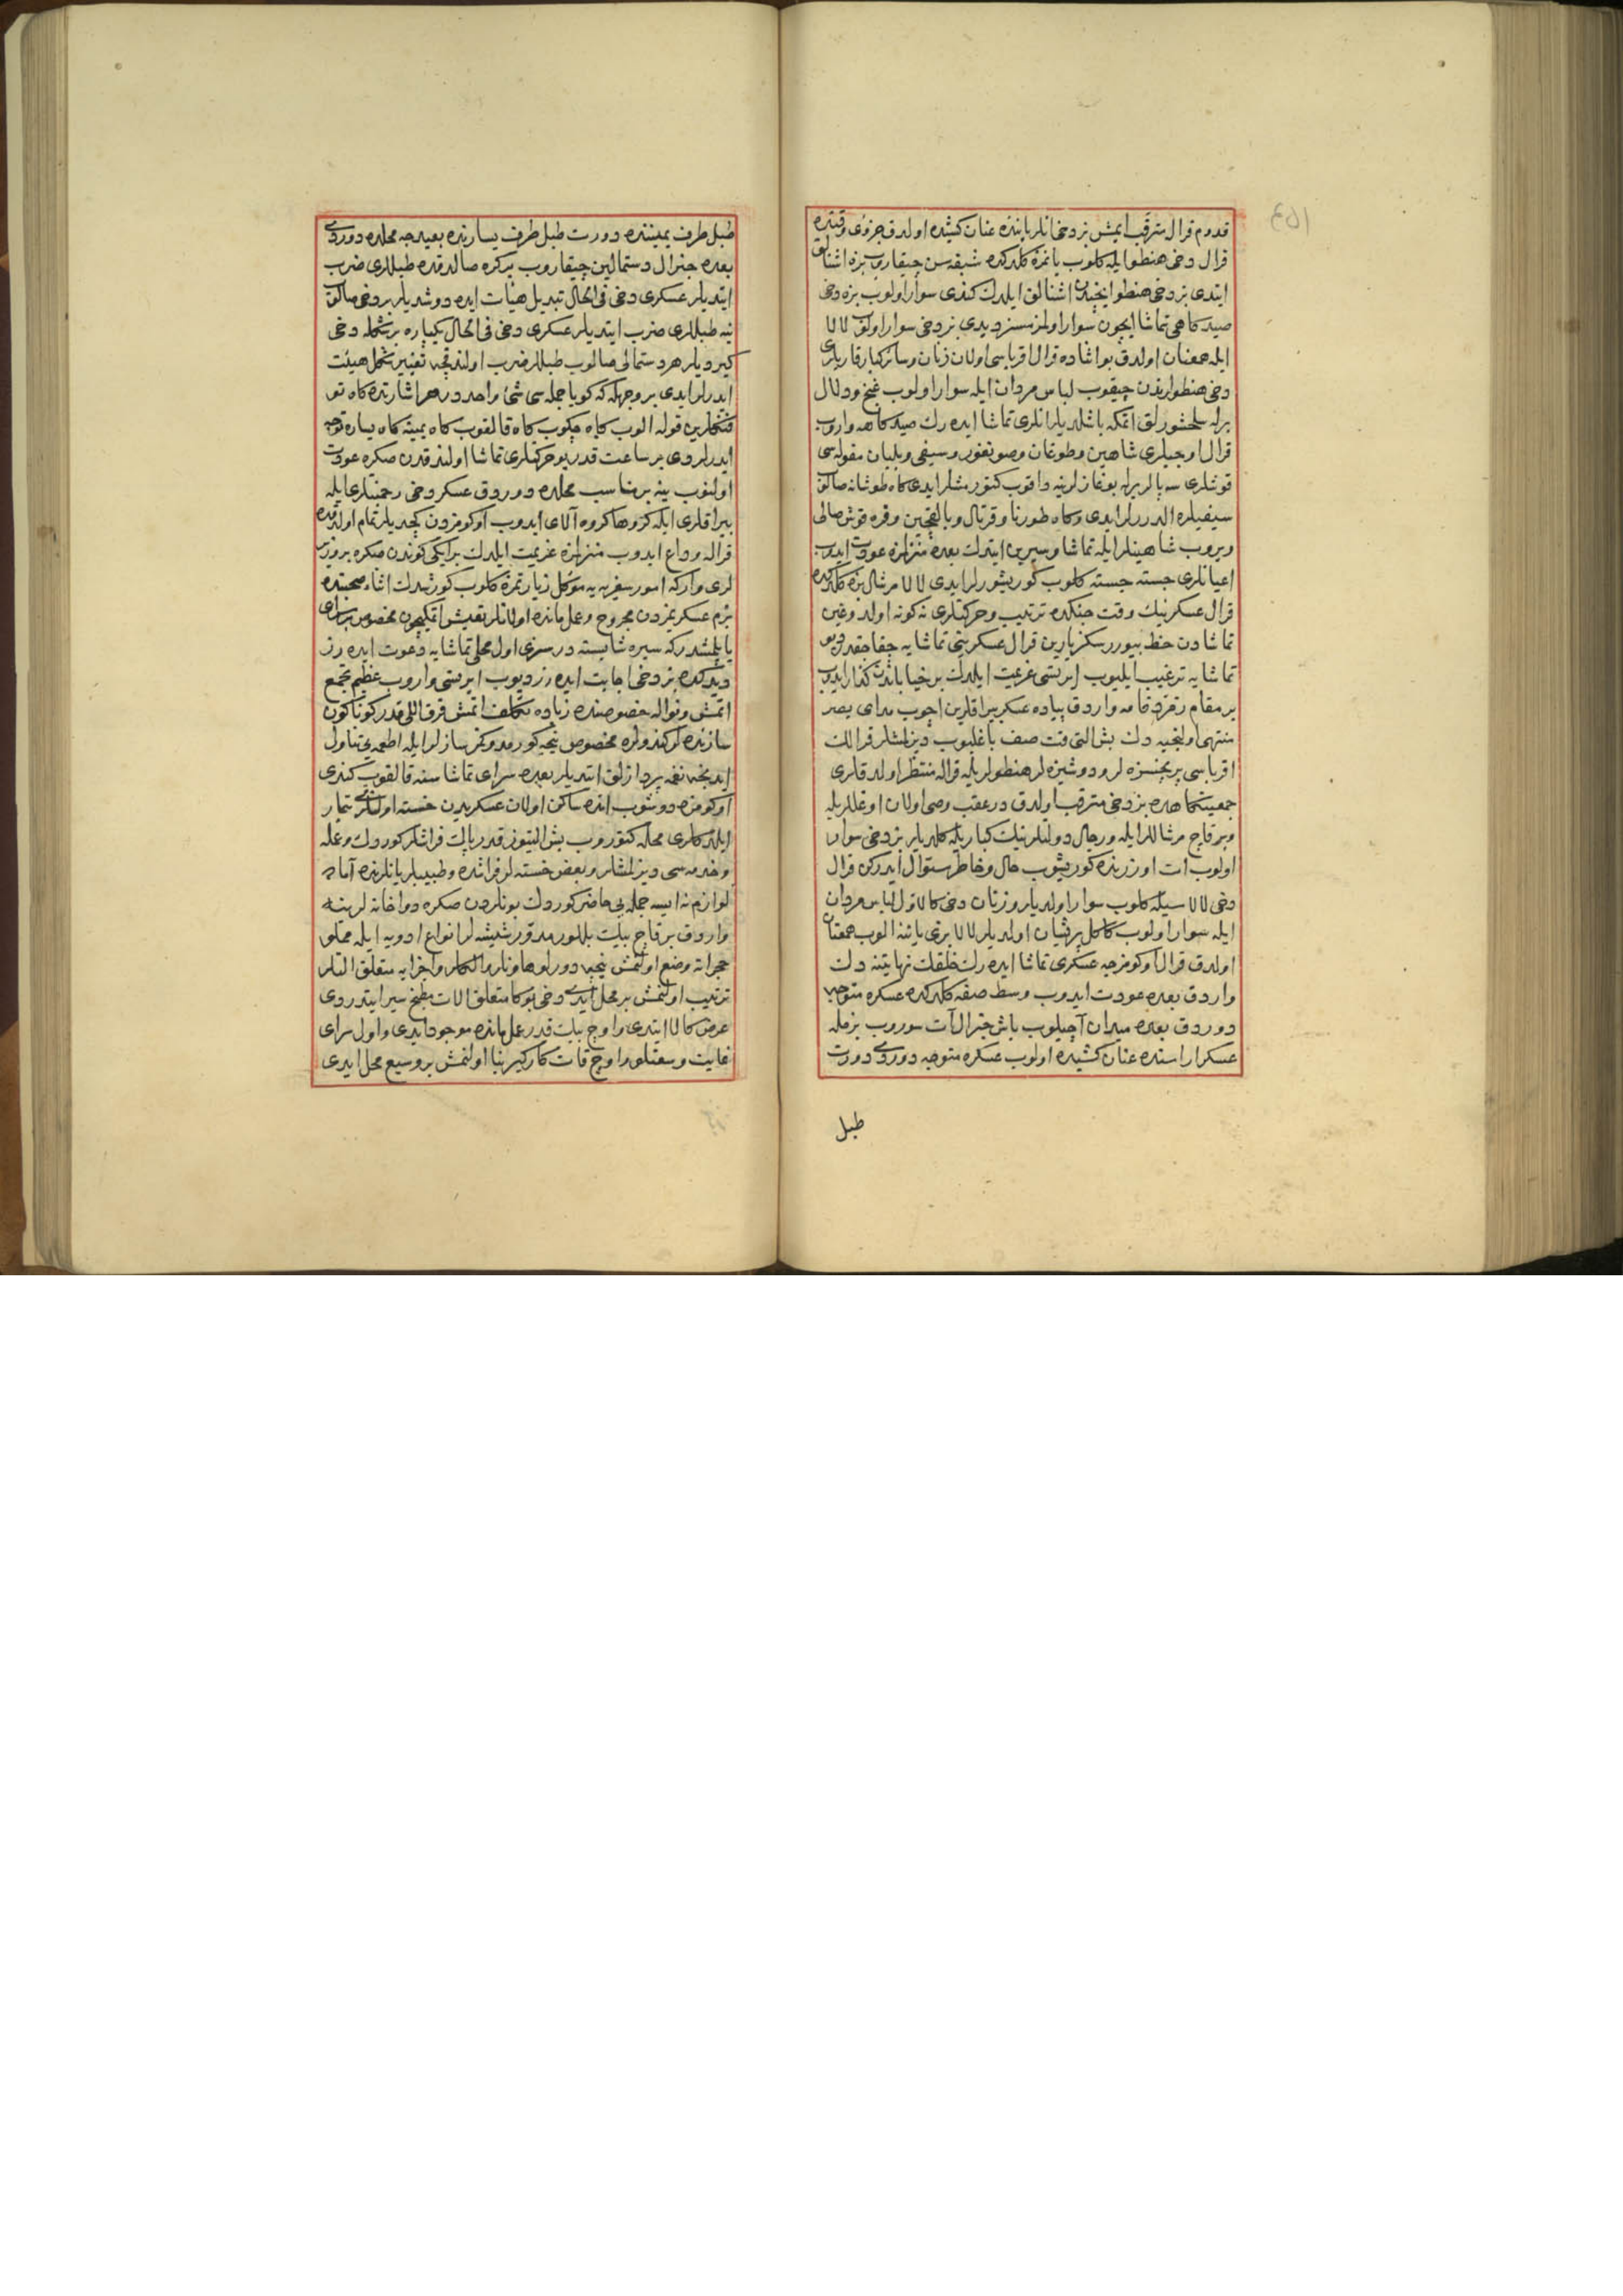 ١٥٣
قدوم قرال مترقب ایمش بز دخی انلر یاننده عنان کشیده اولدق جزؤی وقتده
قرال دخی هنطو ایله کلوب یانمزه کلدکده شبقه سن چیقاروب بزه اشنالق
ایتدی بز دخی هنطو ایچندن اشنالق ایلدك کندی سوار اولوب بزه دخی
صیدکاهی تماشا ایچون سوار اولمزمسز دیدی بز دخی سوار اولوب لالا
ایله همعنان اولدق بو اثناده قرال اقرباسی اولان زنان وسائر کبار قاریلری
دخی هنطولرندن چیقوب لباس مردان ایله سوار اولوب غنج ودلال
برله سلحشورلق اتمکه باشلدیلر انلری تماشا ایده رك صیدکاهه واروب
قرال اوجیلری شاهین وطوغان وصونغور وسیفی وبلبان مقوله سی
قوشلری سپالریله بوغازلرینه داقوب کتورمشلر ایدی کاه طوشانه صالوب
سیفیلره الدررلر ایدی وکاه طورنا وقرتال وبالیقجین وقره قوش صالی
ویروب شاهینلر ایله تماشا وسیرین ایتدك بعده منزلمزه عودت ایدوب
اعیانلری جسته جسته کلوب کوریشورلر ایدی لالا مرشال بزه کلدکده
قرال عسکرینك وقت جنکده ترتیب وحرکتلری نه کونه اولدوغین
تماشادن حظ بیوررسکز یارین قرال عسکرینی تماشایه چقاجقدر دیو
تماشایه ترغیب ایلیوب ایرتسی عزیمت ایلدك بر خیاباندن کذار ایدوب
بر مقام فرحفزایه واردق پیاده عسکر بیراقلرین اچوب مدای بصر
منتهی اولنجیه دك بش التی قت صف باغلیوب دیزلمشلر قرالك
اقرباسی پریچنسزه لر ودوشیزه لر هنطولریله قراله منتظر اولدقلری
جمعیتکاهده بز دخی مترقب اولدق درعقب وصی اولان اوغللریله
وبر قاچ مرشاللر ایله ورجال دولتلرینك کباریله کلدیلر بز دخی سوار
اولوب ات اوزرنده کوریشوب حال وخاطر سؤال ایدرکن قرال
دخی لالاسیله کلوب سوار اولدیلر وزنان دخی کالاول لباس مردان
ایله سوار اولوب کاکل پریشان اولدیلر لالا بزی یاننه الوب همعنان
اولدق قرال اوکومزجه عسکری تماشا ایده رك خلقك نهایتنه دك
واردق بعده عودت ایدوب وسط صفه کلدکده عسکره متوجه
دوردق بعده میدان آچیلوب باش جنرال آت سوروب بزمله
عسکر اراسنده عنان کشیده اولوب عسکره متوجه دوردی دورت
طبل
طبل طرف یمیننده دورت طبل طرف یسارنده بعیدجه محلده دوردی
بعده جنرال دستمالین چیقاروب بر کره صالدقده طبللری ضرب
ایتدیلر عسکری دخی فی الحال تبدیل هیئات ایده دوشدیلر بر دخی صالوب
ینه طبللری ضرب ایتدیلر عسکری دخی فی الحال یکپاره بر شکله دخی
کیردیلر هر دستمالی صالوب طبللر ضرب اولندقجه تغییر شکل هیئت
ایدرلر ایدی بر وجهله که کویا جمله سی شئ واحددر هر اشارتده کاه تو
فنکلرین قوله الوب کاه چکوب کاه قالقوب کاه یمینه کاه یساره توجه
ایدرلردی بر ساعت قدر بو حرکتلری تماشا اولندقدن صکره عودت
اولنوب ینه بر مناسب محلده دوردق عسکر دخی رحمتیلری ایله
بیراقلری ایله کروها کروه آلای ایدوب اوکومزدن کچدیلر تمام اولدقده
قراله وداع ایدوب منزلمزه عزیمت ایلدك بر ایکی کوندن صکره بر وزیر
لری وارکه امور سفریه یه موکل زیارتمزه کلوب کورشدك اثناء صحبتده
بزم عسکریمزدن مجروح وعملمانده اولانلر تعیش اتمکیچون مخصوص بر سرای
یاپلمشدر که سیره شایسته در سزی اول محلی تماشایه دعوت ایده رز
دیدکده بز دخی اجابت ایده رز دیوب ایرتسی واروب عظیم تجمع
اتمش ونواله خصوصنده زیاده تکلف اتمش قرق اللی قدر کوناکون
سازنده لر کندولره مخصوص نیجه کورمدوکمز سازلر ایله اطعمه یی تناول
ایدنجه نغمه پردازلق ایتدیلر بعده سرای تماشاسنه قالقوب کندی
اوکومزه دوشوب انده ساکن اولان عسکریدن خسته اولنلری تیمار
ایلدکلری محله کتوروب بش التیوز قدر پاك فراشلر کوردك وعمله
وخدمه سی دیزلمشلر وبعض خسته لر فراشده وطبیبلر یانلرنده آماده
لوازم نه ایسه جمله یی حاضر کوردك بونلردن صکره دواخانه لرینه
واردق بر قاچ بیك بللور مدور شیشه لر انواع ادویه ایله مملو
حجراته وضع اولنمش نیجه دورلو هاونلر والکلر واجزایه متعلق التلر
ترتیب اولنمش بر محل ایدی دخی بوکا متعلق الات مطبخ سیر ایتدردی
عرض کالا ایتدی واوچ بیك قدر عملمانده موجود ایدی واول سرای
غایت وسعتلو واوچ قات کارکیر بنا اولنمش بر وسیع محل ایدی